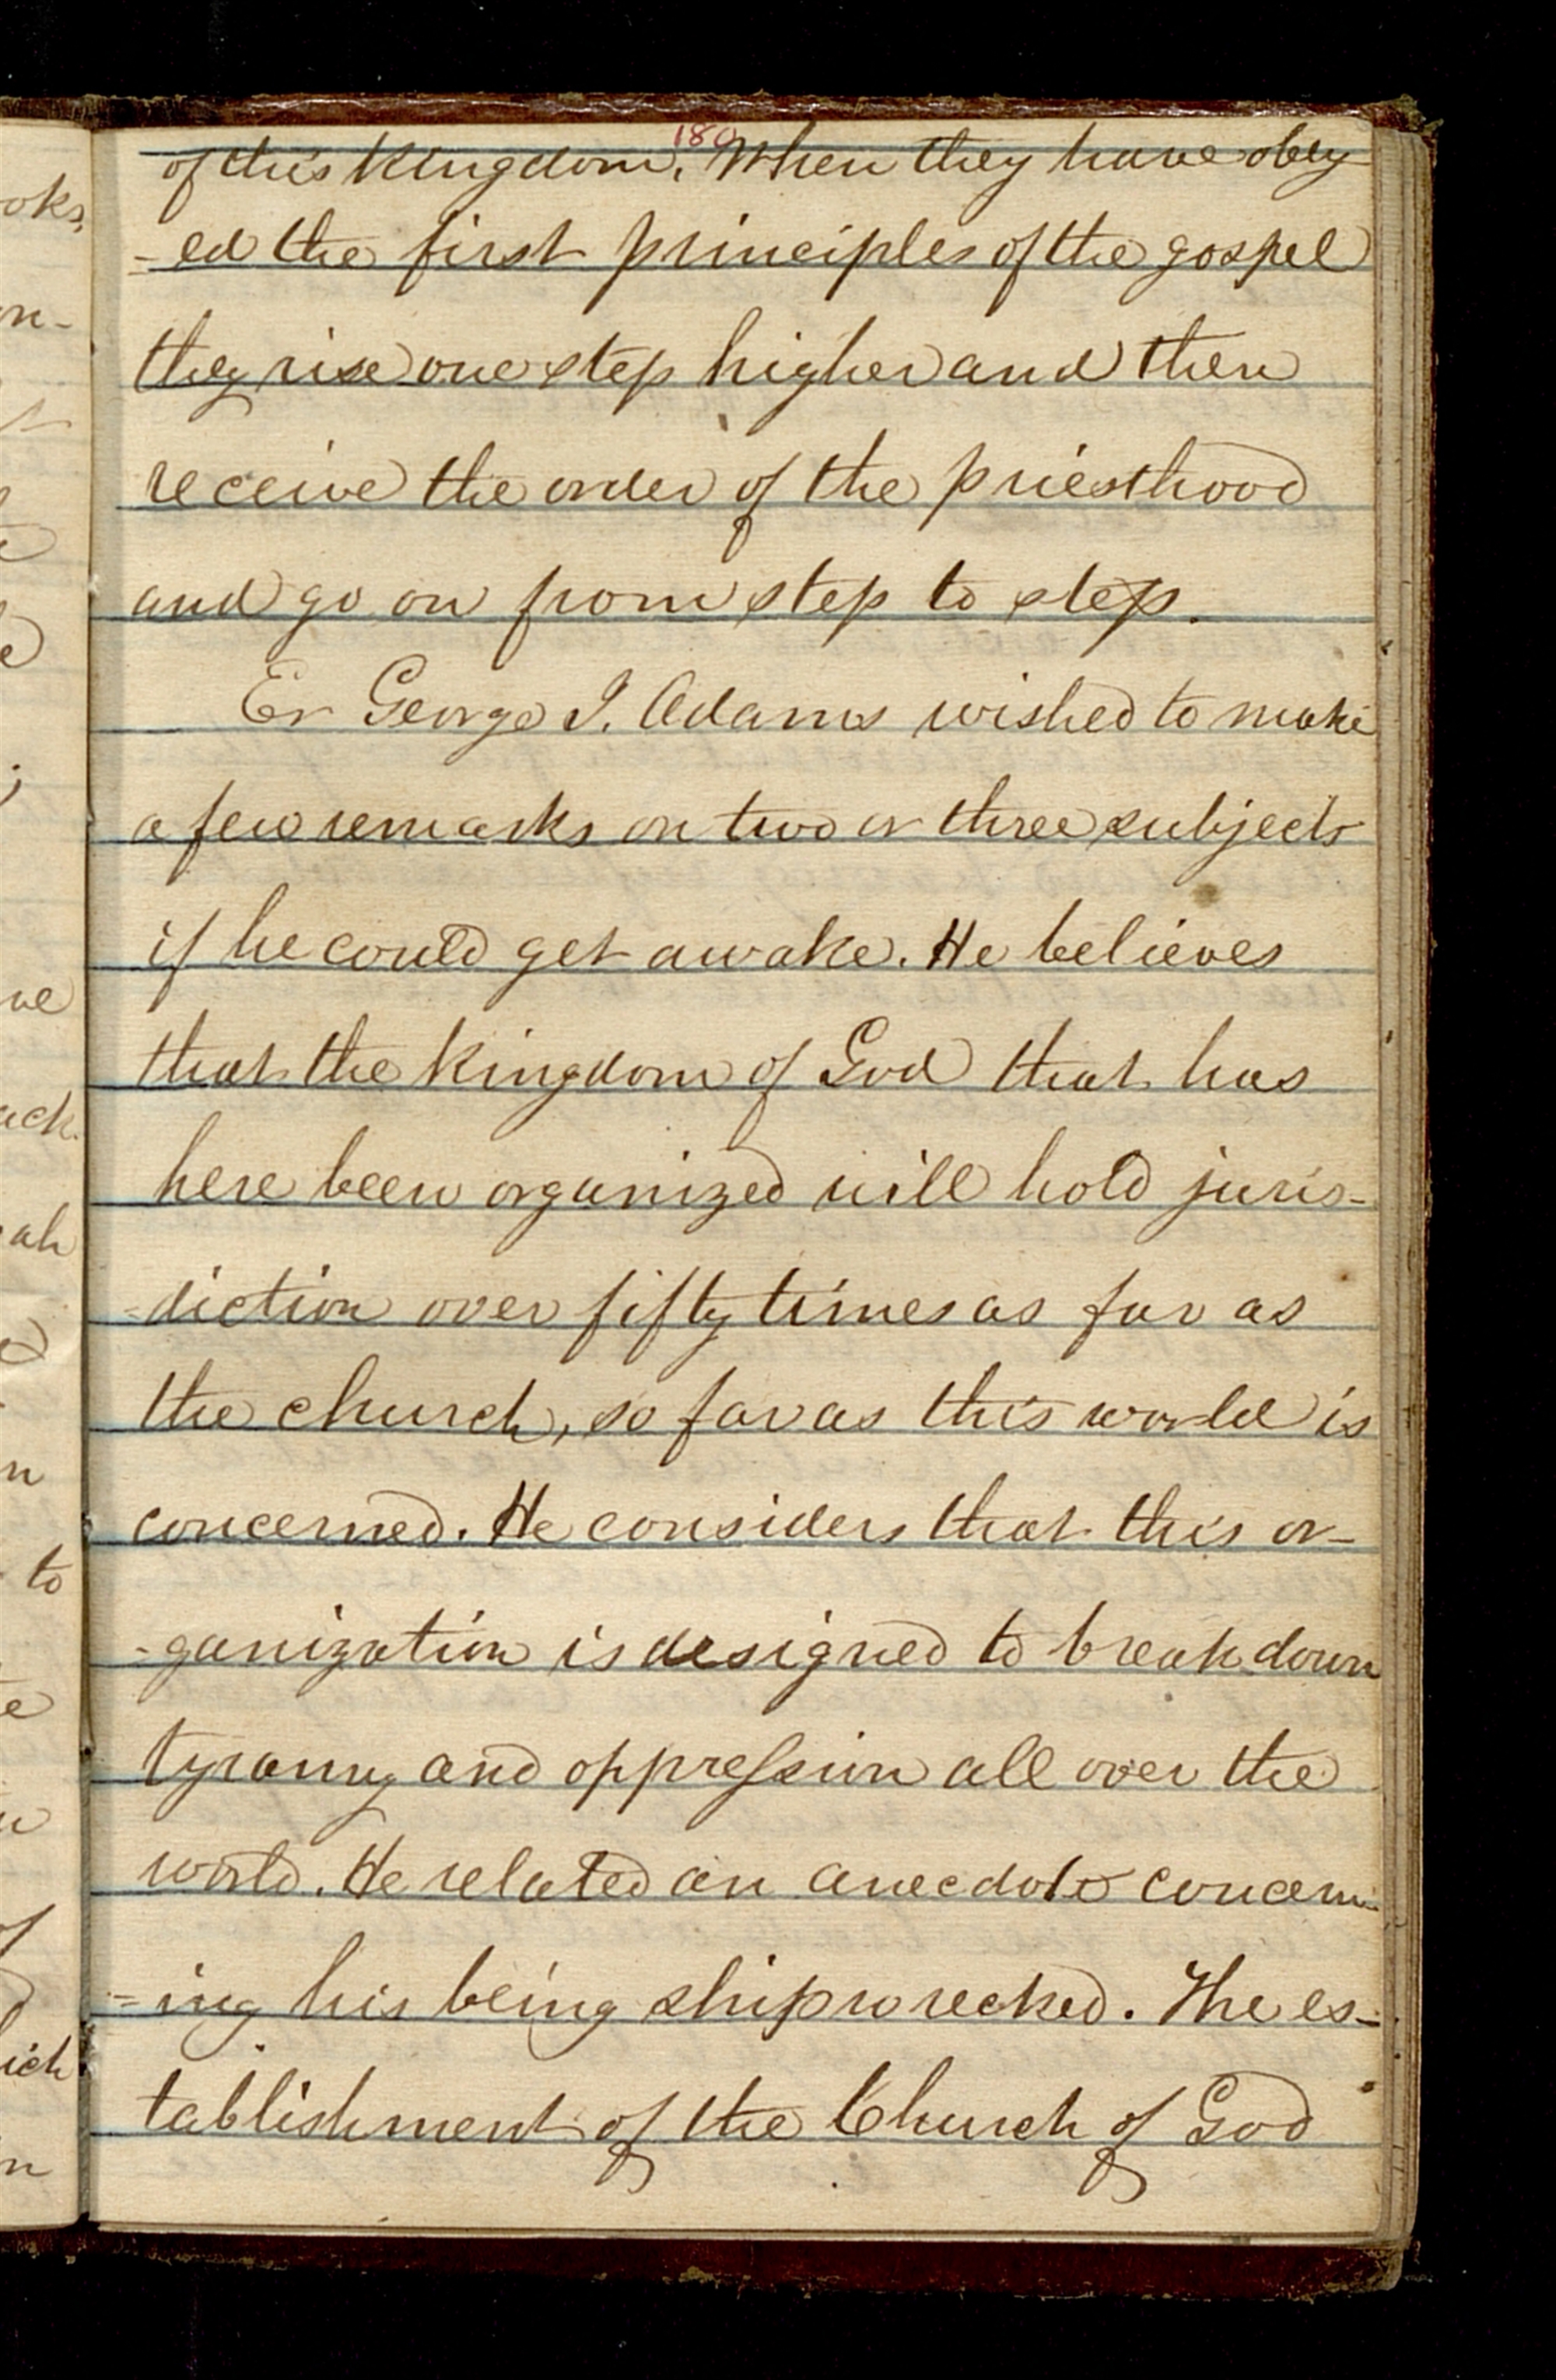 oks,
on-
ve
ack.
ah
n
to
of
ich
n
180
of this Kingdom. When they have obey
-ed the first principles of the gospel
they rise one step higher and then
receive the order of the priesthood
and go on from step to step.
Er George J. Adams wished to make
a few remarks on two or three subjects
if he could get awake. He believes
that the Kingdom of God that has
here been organized will hold juris-
-diction over fifty times as far as
the church, so far as this world is
concerned. He considers that this or-
-ganization is designed to break down
tyranny and oppression all over the
world. He related an anecdote concern-
-ing his being shipwrecked. The es-
tablishment of the Church of God